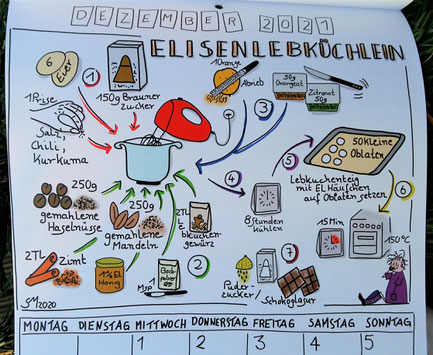 DEZEMBER 2021
ELISENLEBKÜCHLEIN
6
Eier
1
150g Brauner
zucker
1 Orange
Abrieb
50g
Orangeat
Zitronat
50g
1 Prise
Salz,
Chili,
Kurkuma
3
250g
gemahlene
Haselnüsse
250g
gemahlene
Mandeln
2TL
Lebkuchen-
gewürz
2TL
Zimt
1 EL
Honig
2
1 MSP
Back-
pulver
4
8 Stunden
kühlen
5
50 Kleine
Oblaten
Lebkuchenteig
mit EL Häufchen
auf Oblaten setzen
6
15 Min
150°C
7
Puder-
zucker/
Schokoglasur
SM2020
MONTAG DIENSTAG MITTWOCH DONNERSTAG FREITAG SAMSTAG SONNTAG
1 2 3 4 5